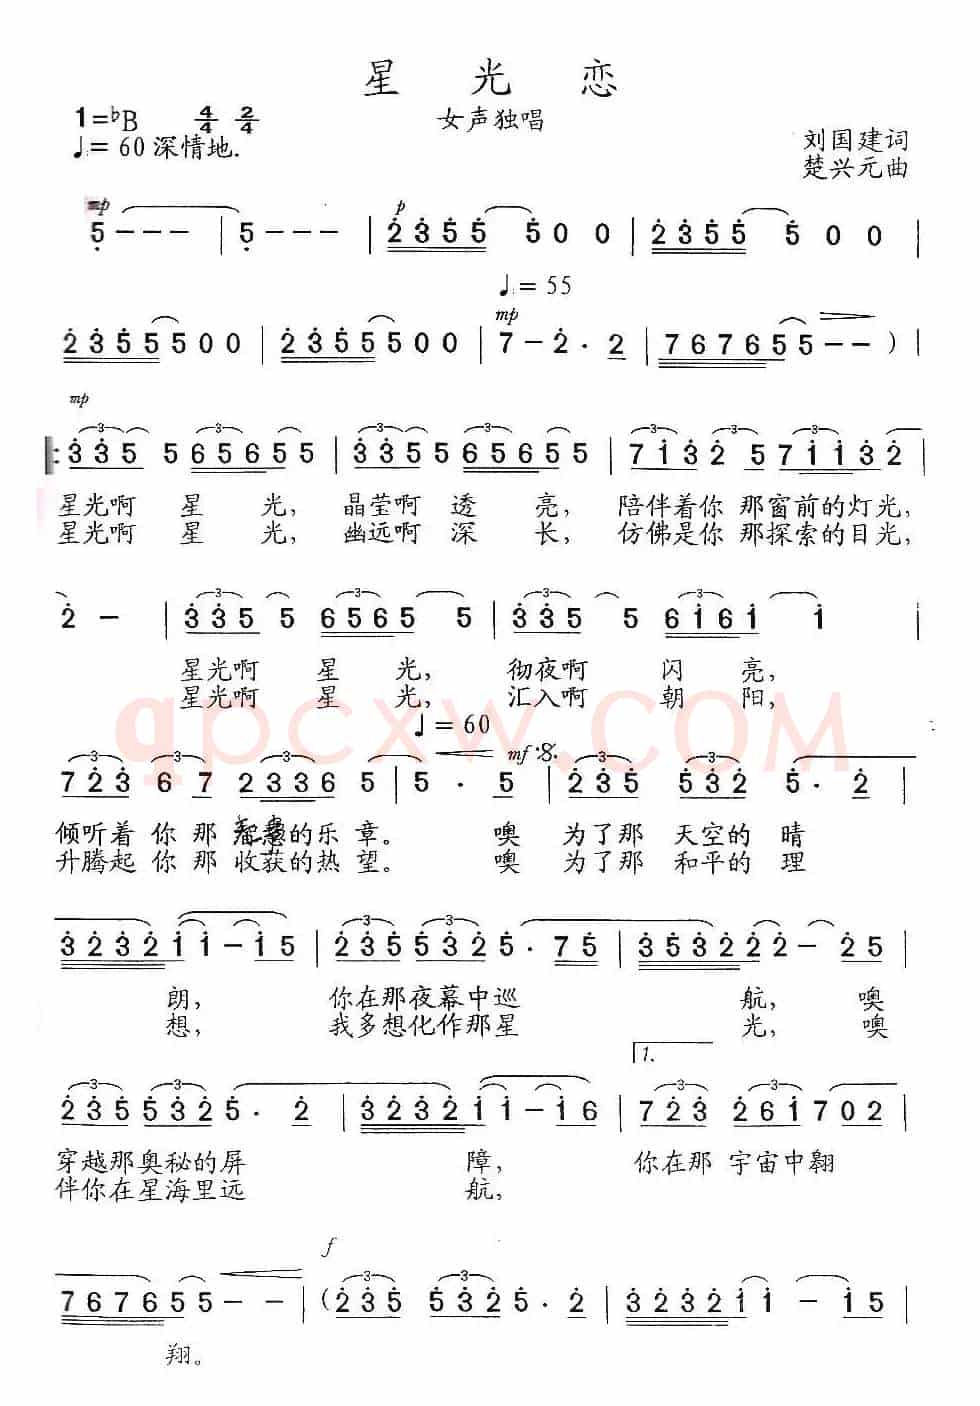 星 光 恋
女声独唱
1=♭B 4/4 2/4
♩= 60 深情地.
刘国建词
楚兴元曲
mp p
5 - - - | 5 - - - | 2 3 5 5 5 0 0 | 2 3 5 5 5 0 0 |
♩= 55
mp
2 3 5 5 5 0 0 | 2 3 5 5 5 0 0 | 7 - 2 . 2 | 7 6 7 6 5 5 - - ) |
mp
3 3 5 5 6 5 6 5 5 | 3 3 5 5 6 5 6 5 5 | 7 1 3 2 5 7 1 1 3 2 |
星光啊 星 光, 晶莹啊 透 亮, 陪伴着你 那窗前的灯光,
星光啊 星 光, 幽远啊 深 长, 仿佛是你 那探索的目光,
2 - | 3 3 5 5 6 5 6 5 5 | 3 3 5 5 6 1 6 1 1 |
星光啊 星 光, 彻夜啊 闪 亮,
星光啊 星 光, 汇入啊 朝 阳,
qpcxw.COM
♩= 60
mf
7 2 3 6 7 2 3 3 6 5 | 5 . 5 | 2 3 5 5 3 2 5 . 2 |
倾听着 你 那 的乐 章。 噢 为了那 天空的 晴
升腾起 你 那 收获的热 望。 噢 为了那 和平的 理
3 2 3 2 1 1 - 1 5 | 2 3 5 5 3 2 5 . 7 5 | 3 5 3 2 2 2 - 2 5 |
朗, 你在那夜幕中巡 航, 噢
想, 我多想化作那星 光, 噢
1.
2 3 5 5 3 2 5 . 2 | 3 2 3 2 1 1 - 1 6 | 7 2 3 2 6 1 7 0 2 |
穿越那奥秘的屏 障, 你在那 宇宙中翱
伴你在星海里远 航,
f
7 6 7 6 5 5 - - | ( 2 3 5 5 3 2 5 . 2 | 3 2 3 2 1 1 - 1 5 |
翔。